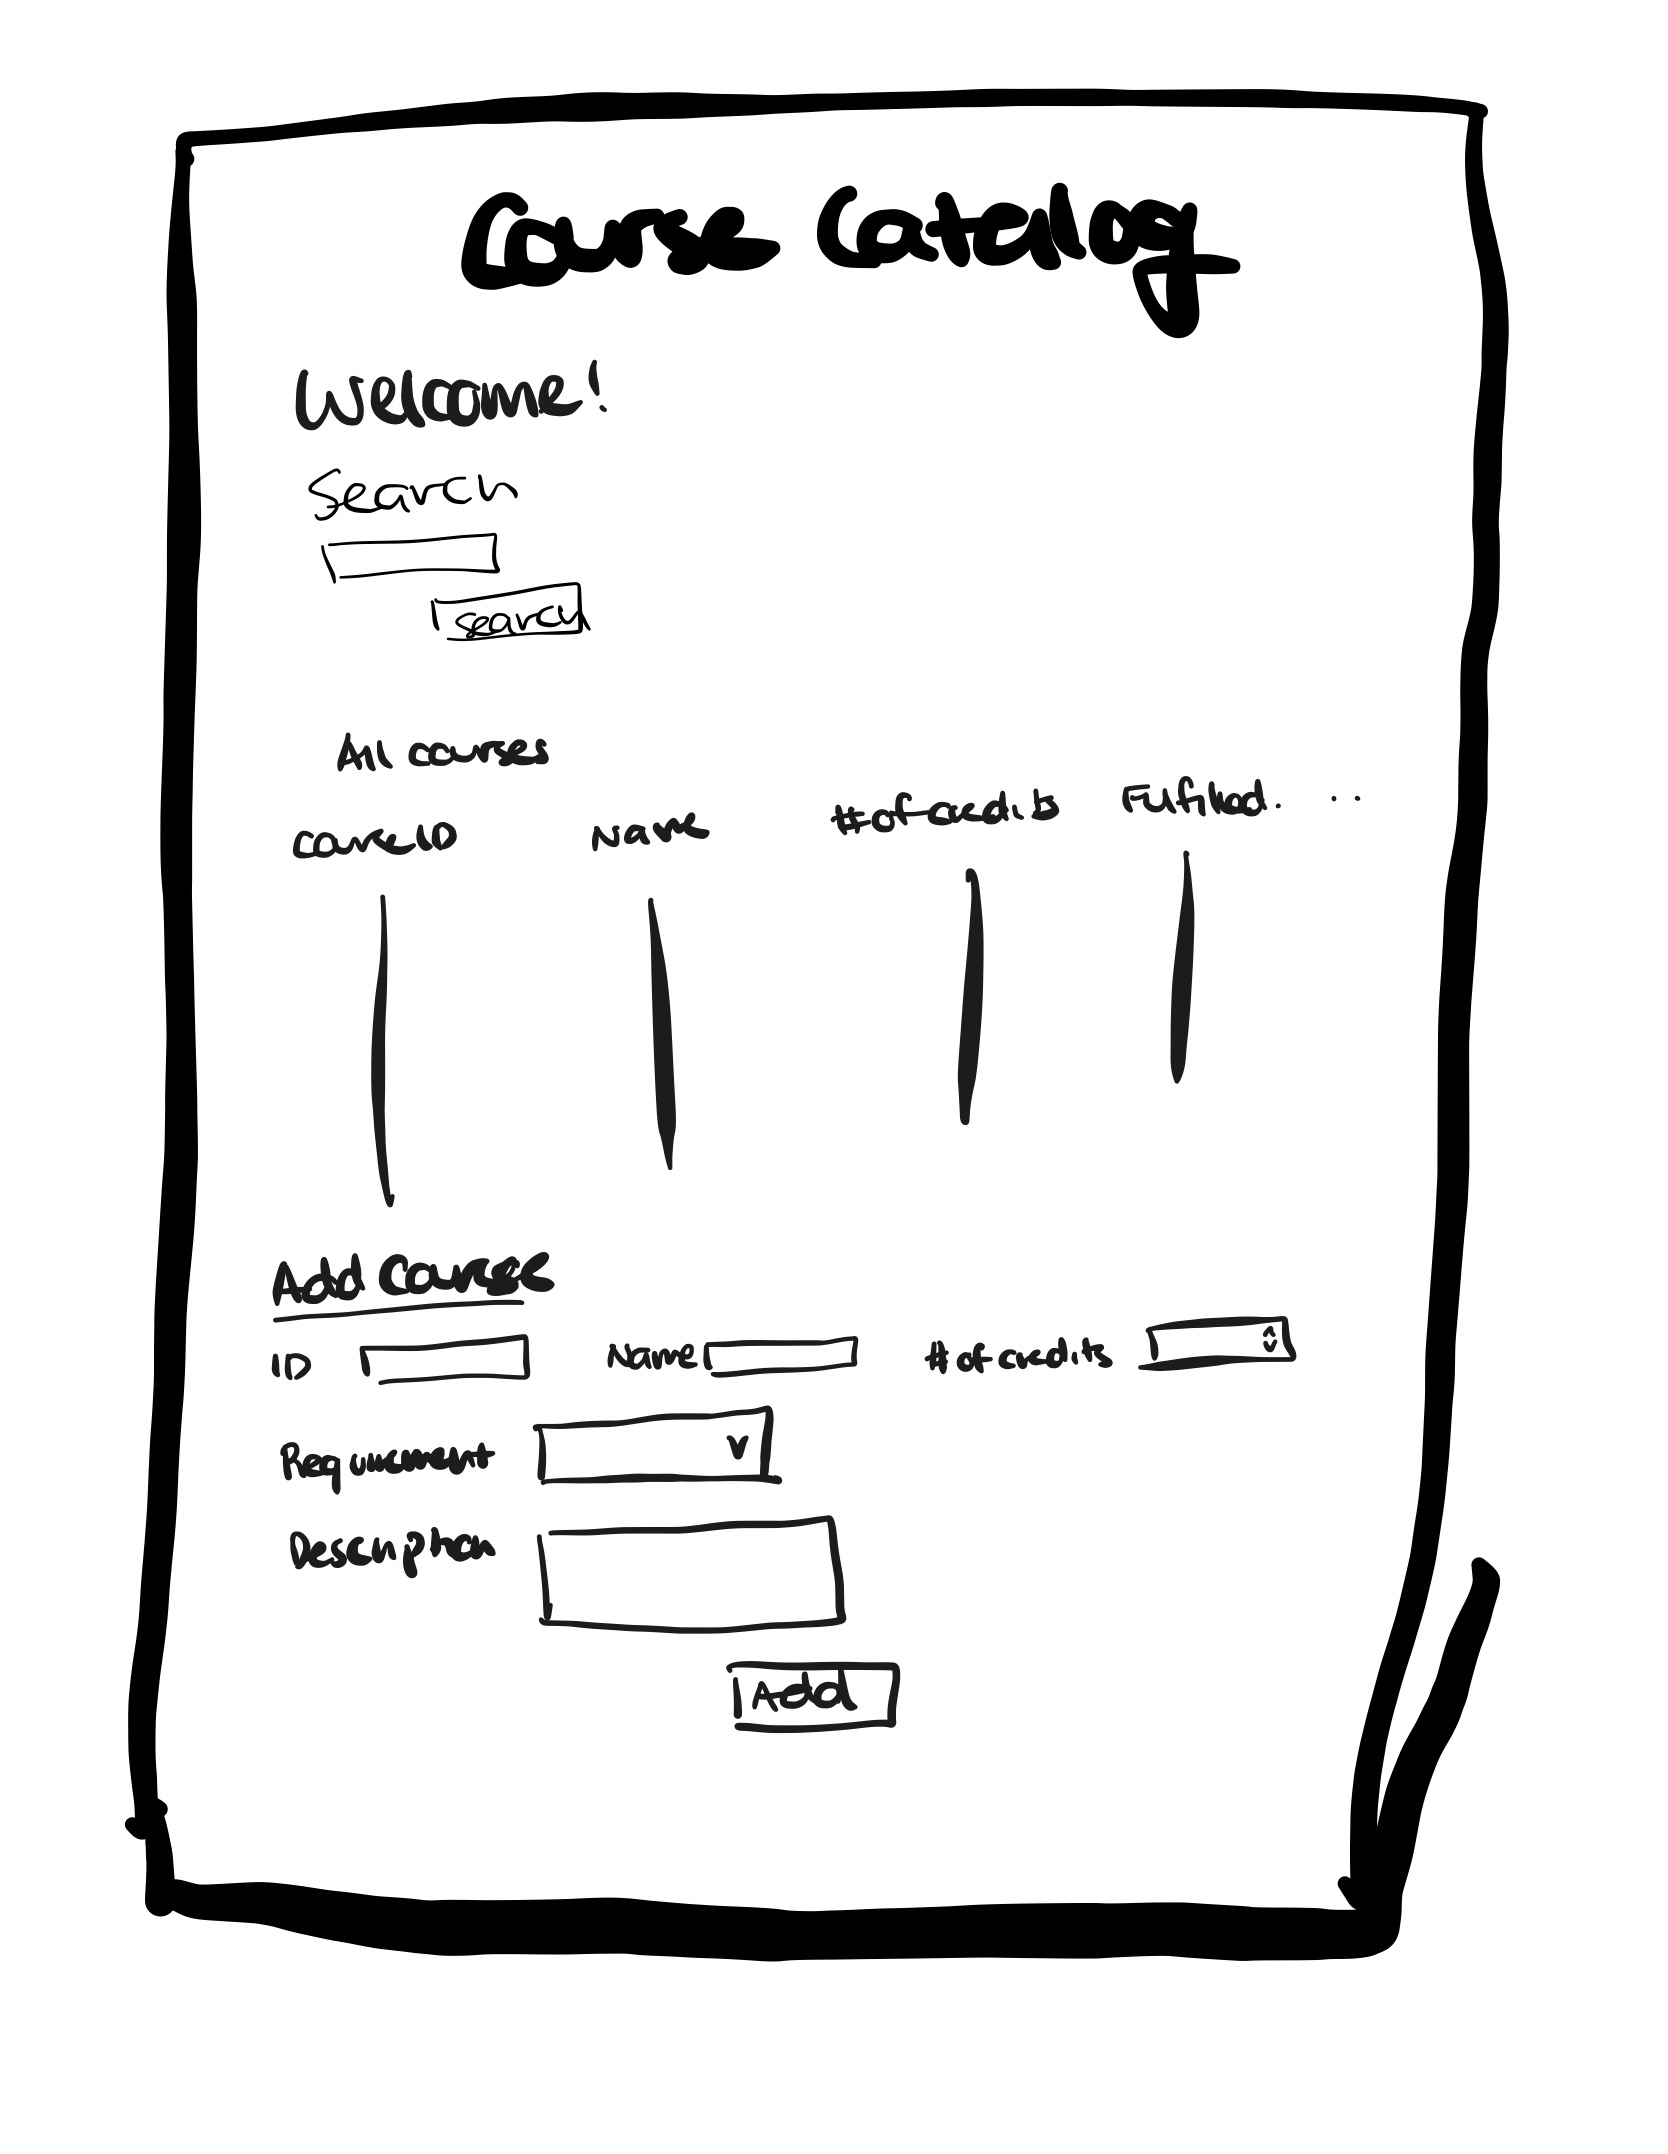 Course Catalog
Welcome!
Search
search
All courses
Course ID Name # of credits Fulfilled. ..
Add Course
ID Name # of credits
Requirement v
Description
Add